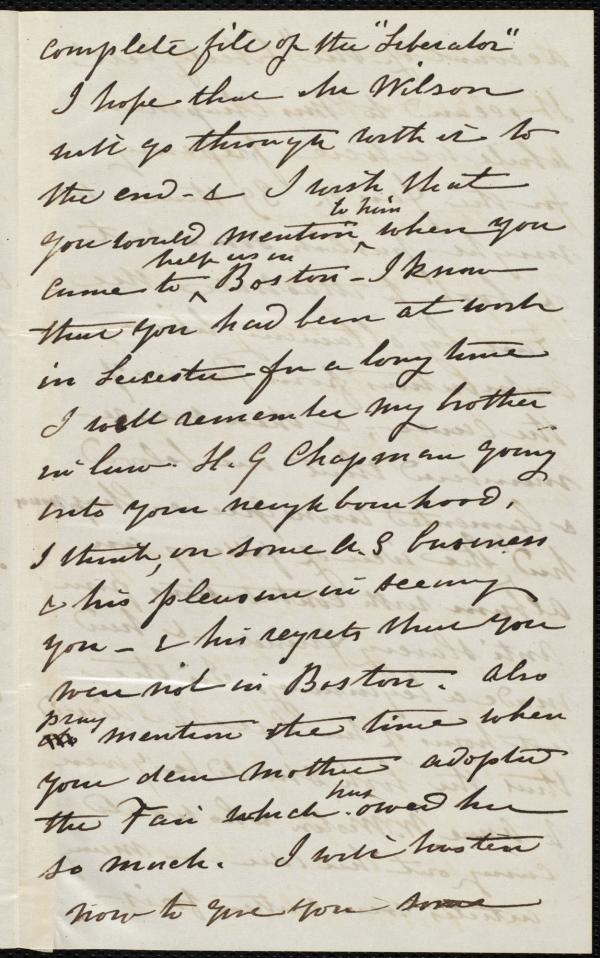 complete file of the "Liberator"
I hope that Mr Wilson
will go through with it to
the end - & I wish that
to him
you would mention ^ when you
help us in
came to ^ Boston - I know
that you had been at work
in Leicester for a long time
I well remember my brother
in law. H. G Chapman going
into your neighbourhood,
I think, on some A. S business
& his pleasure in seeing
you - & his regrets that you
were not in Boston. Also
pray
mention the time when
your dear mother adopted
has
the Fair which . owed her
so much. I will hasten
now to give you some